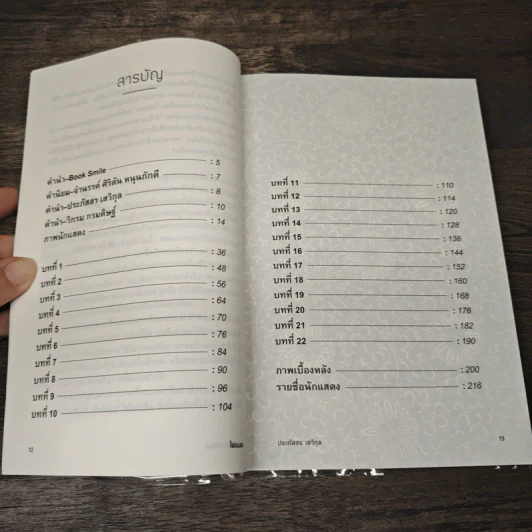 สารบัญ
คำนำ–Book Smile : 5
คำนิยม–จำนรรค์ ศิริตัน หนุนภักดี : 7
คำนำ–ประภัสสร เสวิกุล : 8
คำนำ–วิกรม กรมดิษฐ์ : 10
ภาพนักแสดง : 14
บทที่ 1 : 36
บทที่ 2 : 48
บทที่ 3 : 56
บทที่ 4 : 64
บทที่ 5 : 70
บทที่ 6 : 76
บทที่ 7 : 84
บทที่ 8 : 90
บทที่ 9 : 96
บทที่ 10 : 104
12
บทที่ 11 : 110
บทที่ 12 : 114
บทที่ 13 : 120
บทที่ 14 : 128
บทที่ 15 : 136
บทที่ 16 : 144
บทที่ 17 : 152
บทที่ 18 : 160
บทที่ 19 : 168
บทที่ 20 : 176
บทที่ 21 : 182
บทที่ 22 : 190
ภาพเบื้องหลัง : 200
รายชื่อนักแสดง : 216
ประภัสสร เสวิกุล 13